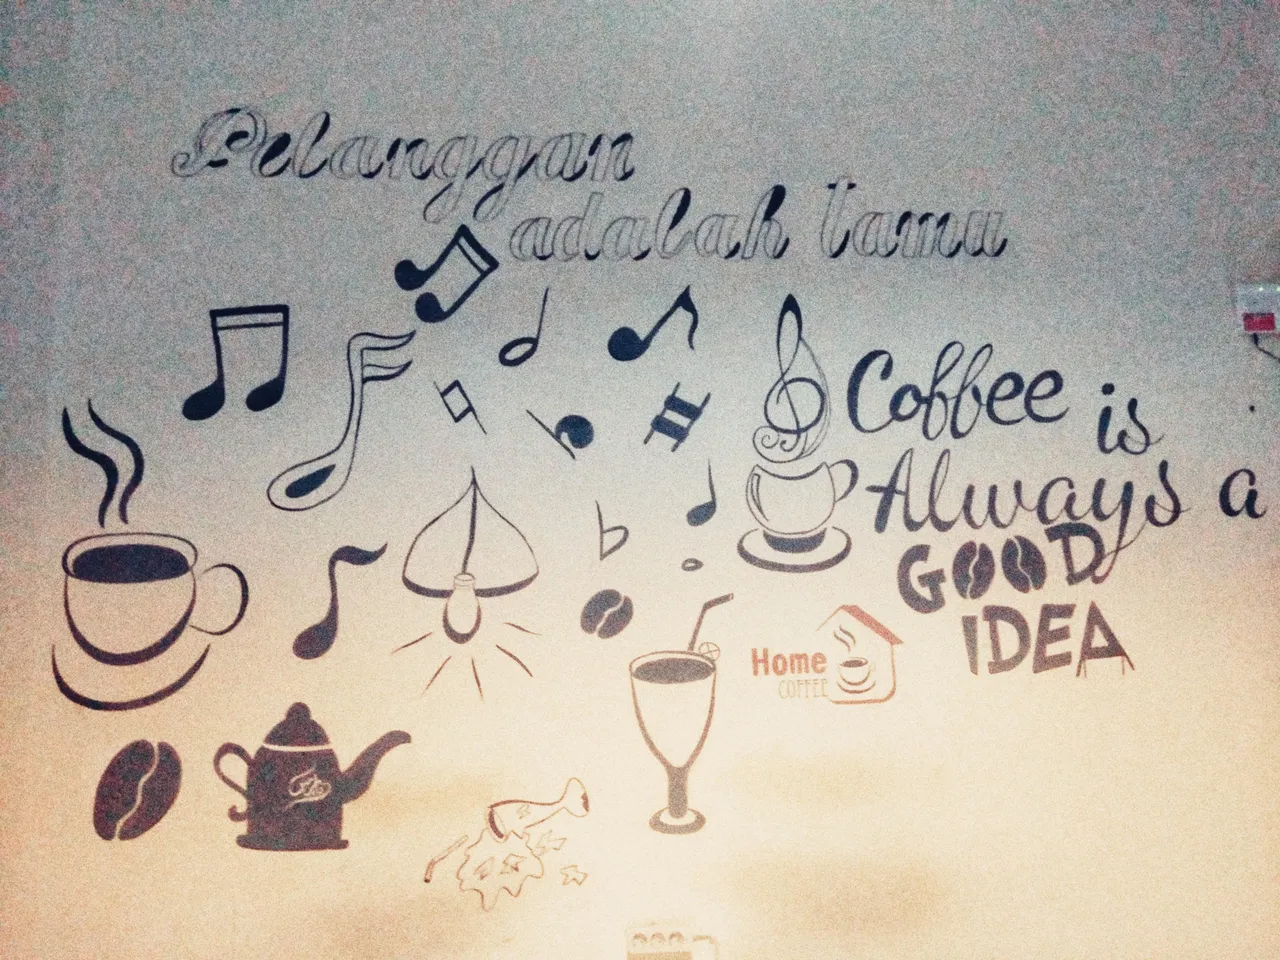 Pelanggan
adalah tamu
Coffee is
Always a
GOOD
IDEA
Home
COFFEE